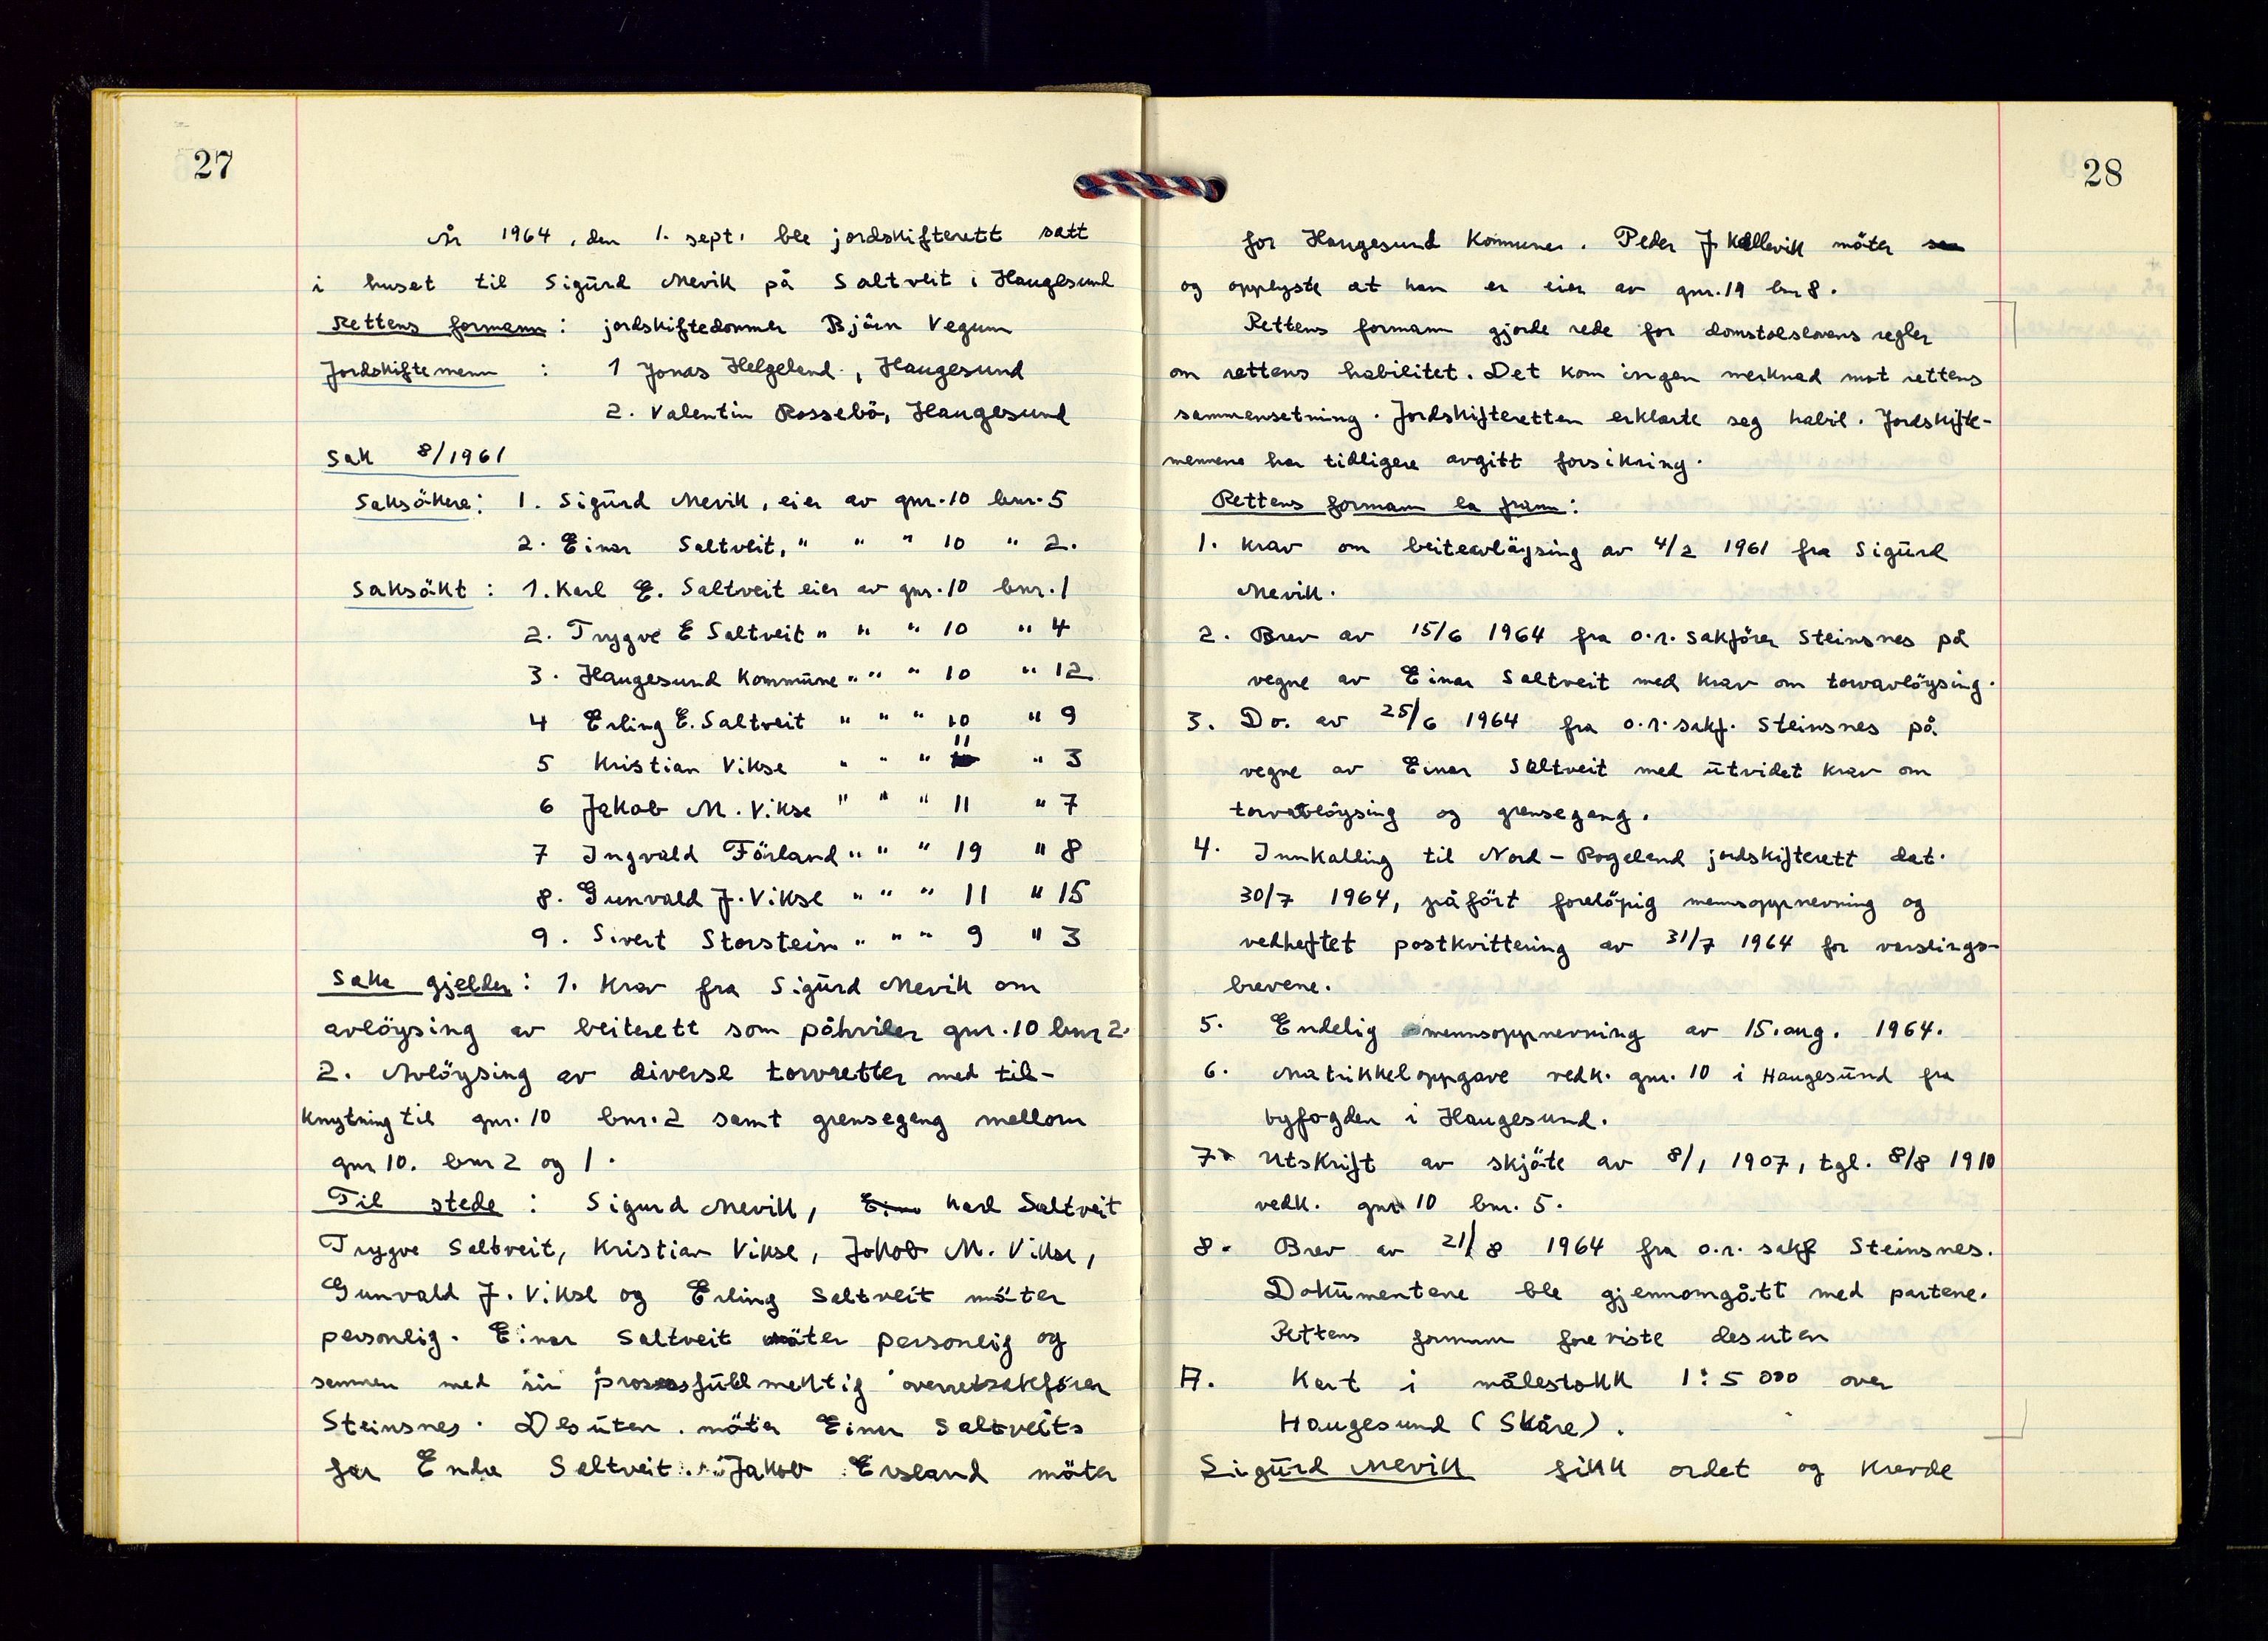 27
År 1964, den 1. sept. ble jordskifterett satt
i huset til Sigurd Mevik på Saltveit i Haugesund
Rettens formann : jordskiftedommer Björn Vegum
Jordskiftemenn : 1 Jonas Helgeland, Haugesund
2. Valentin Rossebö, Haugesund
Sak 8/1961
Saksökere: 1. Sigurd Mevik, eier av gnr. 10 bnr. 5
2. Einar Saltveit, " " " 10 " 2.
Saksökt : 1. Karl E. Saltveit eier av gnr. 10 bnr. 1
2. Trygve E Saltveit " " " 10 " 4
3. Haugesund Kommune " " " 10 " 12
4 Erling E. Saltveit " " " 10 " 9
5 Kristian Vikse " " " 11 " 3
6 Jakob M. Vikse " " " 11 " 7
7 Ingvald Förland " " " 19 " 8
8. Gunvald J. Vikse " " " 11 " 15
9. Sivert Storstein " " " 9 " 3
Saka gjelder: 1. Krav fra Sigurd Mevik om
avlöysing av beiterett som påhviler gnr. 10 bnr 2.
2. Avlöysing av diverse torvretter med til-
knytning til gnr. 10 bnr. 2 samt grensegang mellom
gnr 10. bnr 2 og 1.
Til stede : Sigurd Mevik, Karl Saltveit
Trygve Saltveit, Kristian Vikse, Jakob M. Vikse,
Gunvald J. Vikse og Erling Saltveit möter
personlig. Einar Saltveit möter personlig og
sammen med sin prosessfullmektig overretssakförer
Steinsnes. Desuten möter Einar Saltveits
far Endre Saltveit. Jakob Ersland möter
28
for Haugesund Kommune. Peder J. Kallevik möter
og opplyste at han er eier av gnr. 19 bnr 8.
Rettens formann gjorde rede for domstolslovens regler
om rettens habilitet. Det kom ingen merknad mot rettens
sammensetning. Jordskifteretten erklærte seg habil. Jordskifte-
mennene har tidligere avgitt forsikring.
Rettens formann la fram:
1. Krav om beiteavlöysing av 4/2 1961 fra Sigurd
Mevik.
2. Brev av 15/6 1964 fra o.r. sakförer Steinsnes på
vegne av Einar Saltveit med krav om torvavlöysing.
3. Do. av 25/6 1964 fra o.r. sakf. Steinsnes på
vegne av Einar Saltveit med utvidet krav om
torvavlöysing og grensegang.
4. Innkalling til Nord-Rogaland jordskifterett dat.
30/7 1964, påfört forelöpig mennsoppnevning og
vedheftet postkvittering av 31/7 1964 for varslings-
brevene.
5. Endelig mennsoppnevning av 15. aug. 1964.
6. Matrikkeloppgave vedk. gnr. 10 i Haugesund fra
byfogden i Haugesund.
7. Utskrift av skjöte av 8/1 1907, tgl. 8/8 1910
vedk. gnr 10 bnr. 5.
8. Brev av 21/8 1964 fra o.r. sakf Steinsnes.
Dokumentene ble gjennomgått med partene.
Rettens formann foreviste desuten
A. Kart i målestokk 1:5 000 over
Haugesund (Skåre).
Sigurd Mevik fikk ordet og krevde